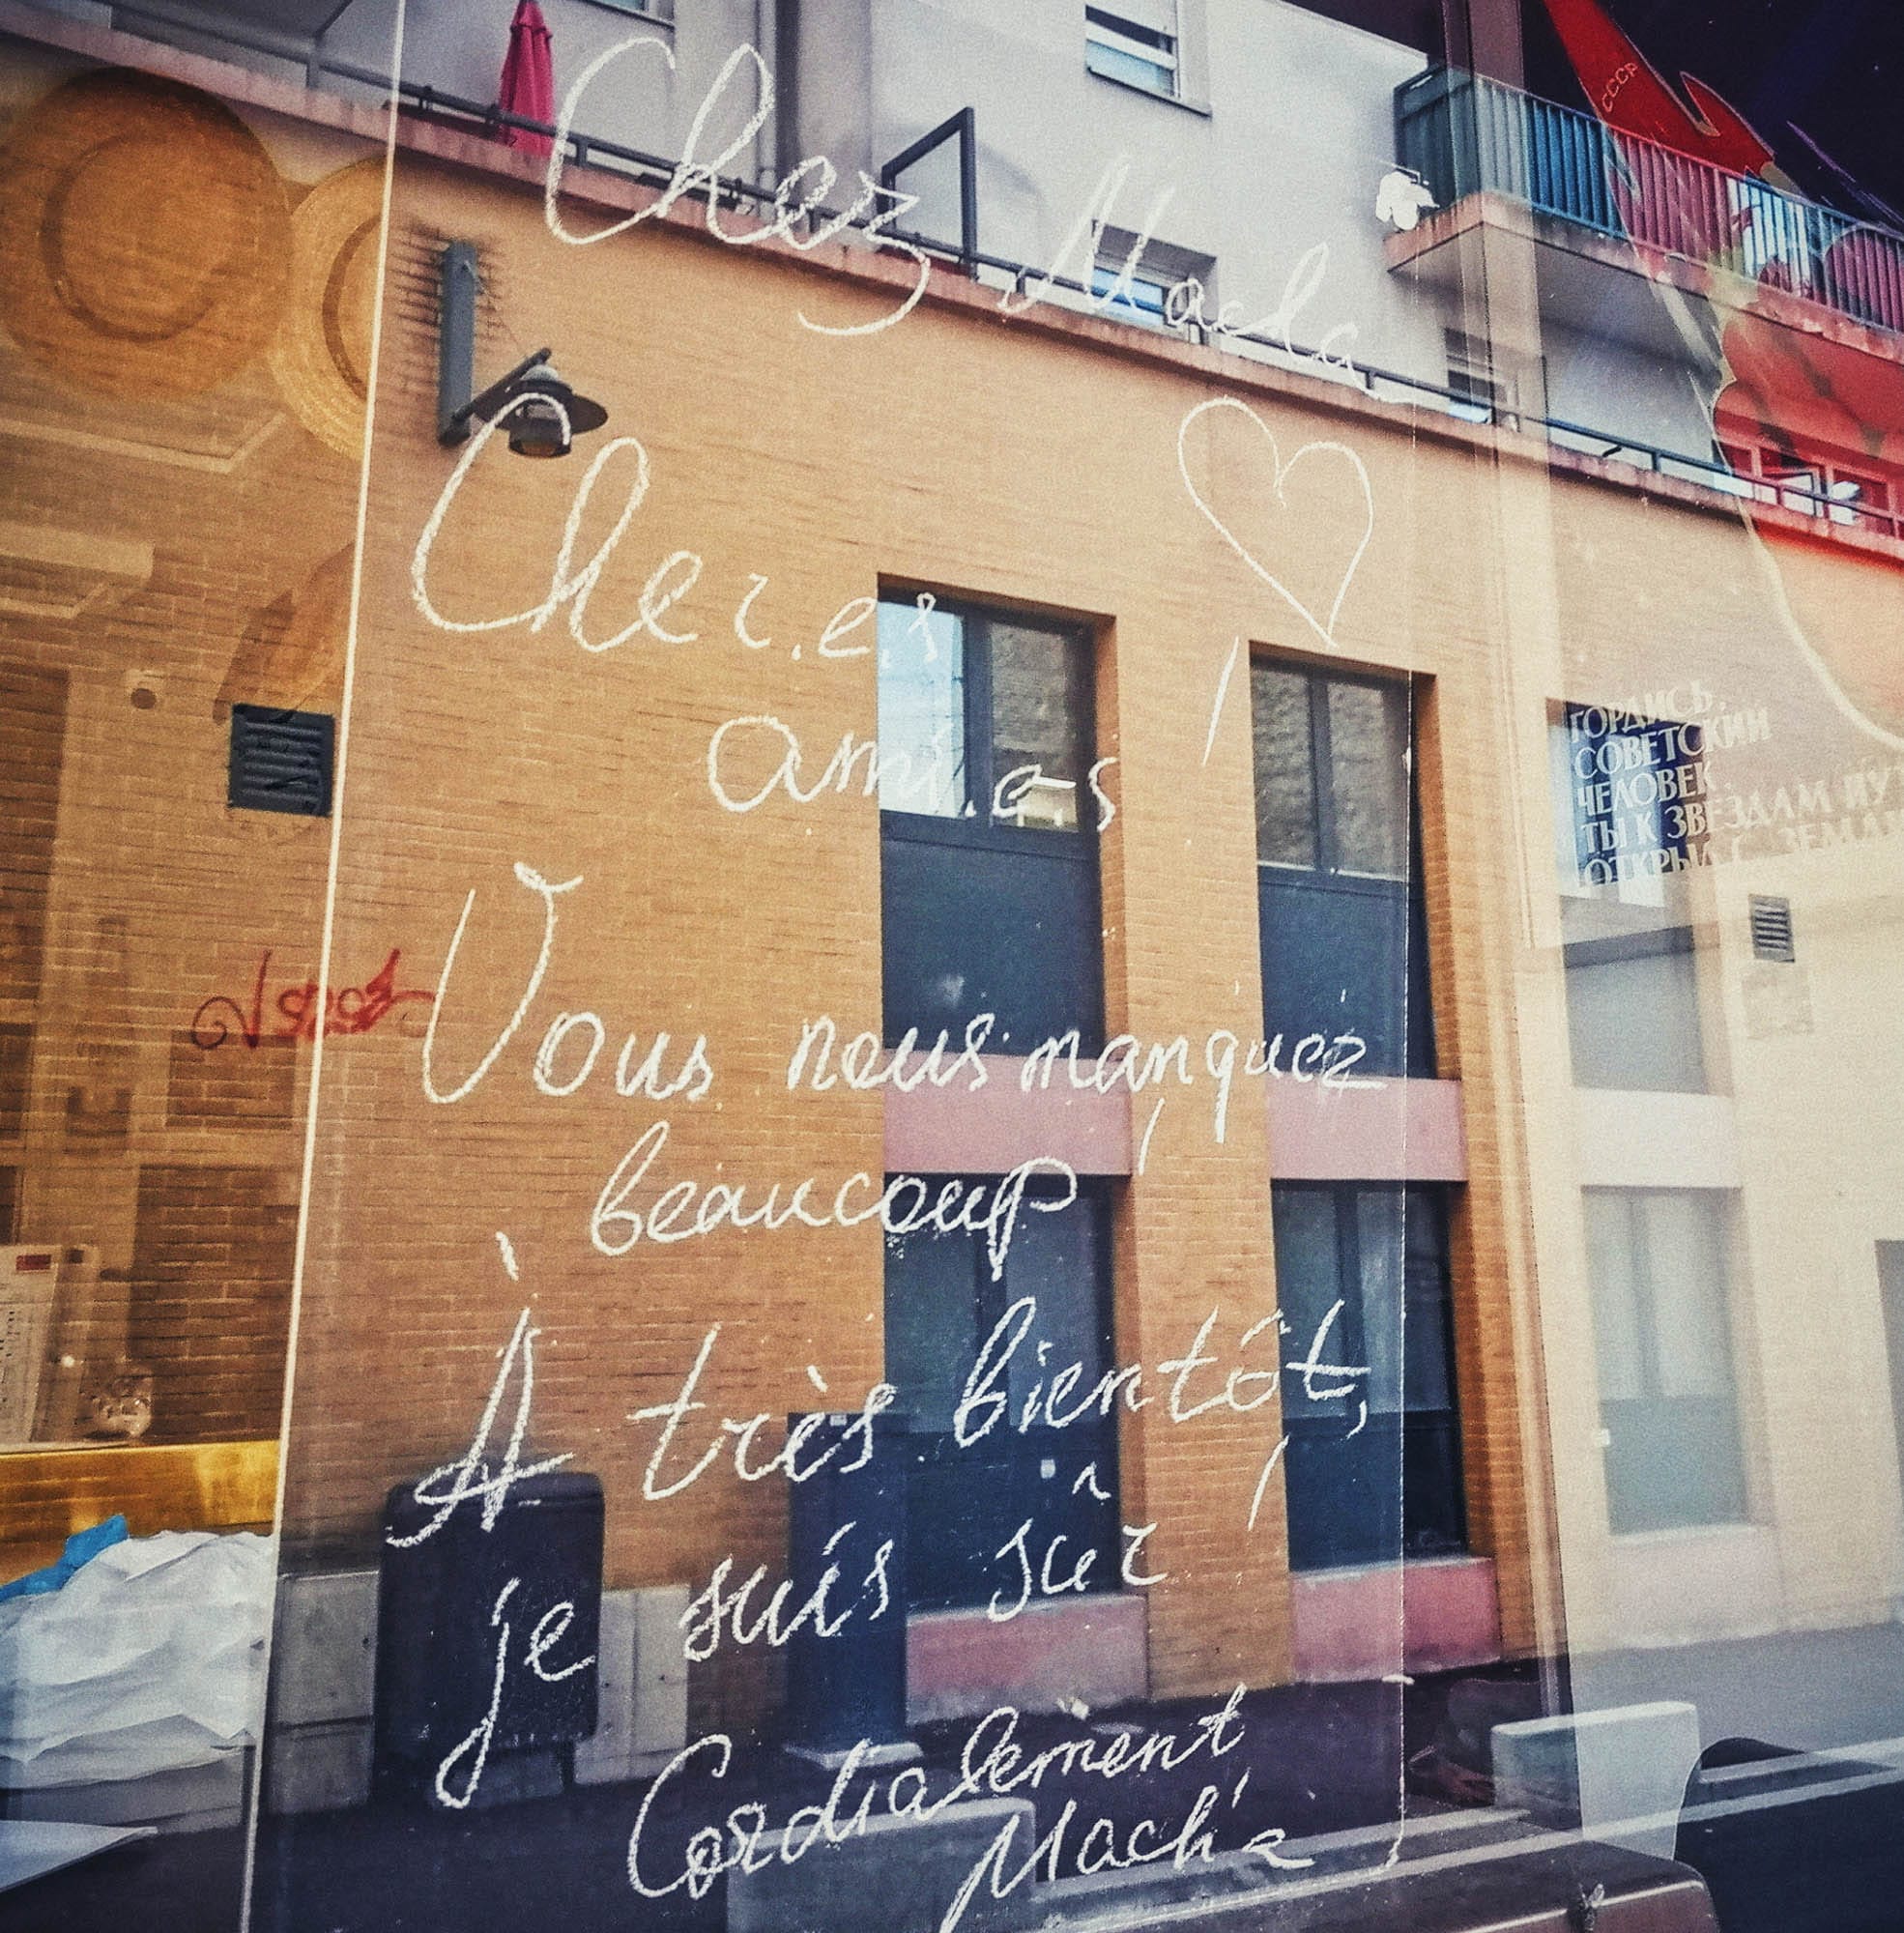 Chez Macha
Cher.e.s
ami.e.s !
Vous nous manquez
beaucoup !
À très bientôt,
je suis sûr !
Cordialement
Macha
СССР
ГОРДИСЬ,
СОВЕТСКИЙ
ЧЕЛОВЕК,
ТЫ К ЗВЕЗДАМ
ОТКРЫЛ С